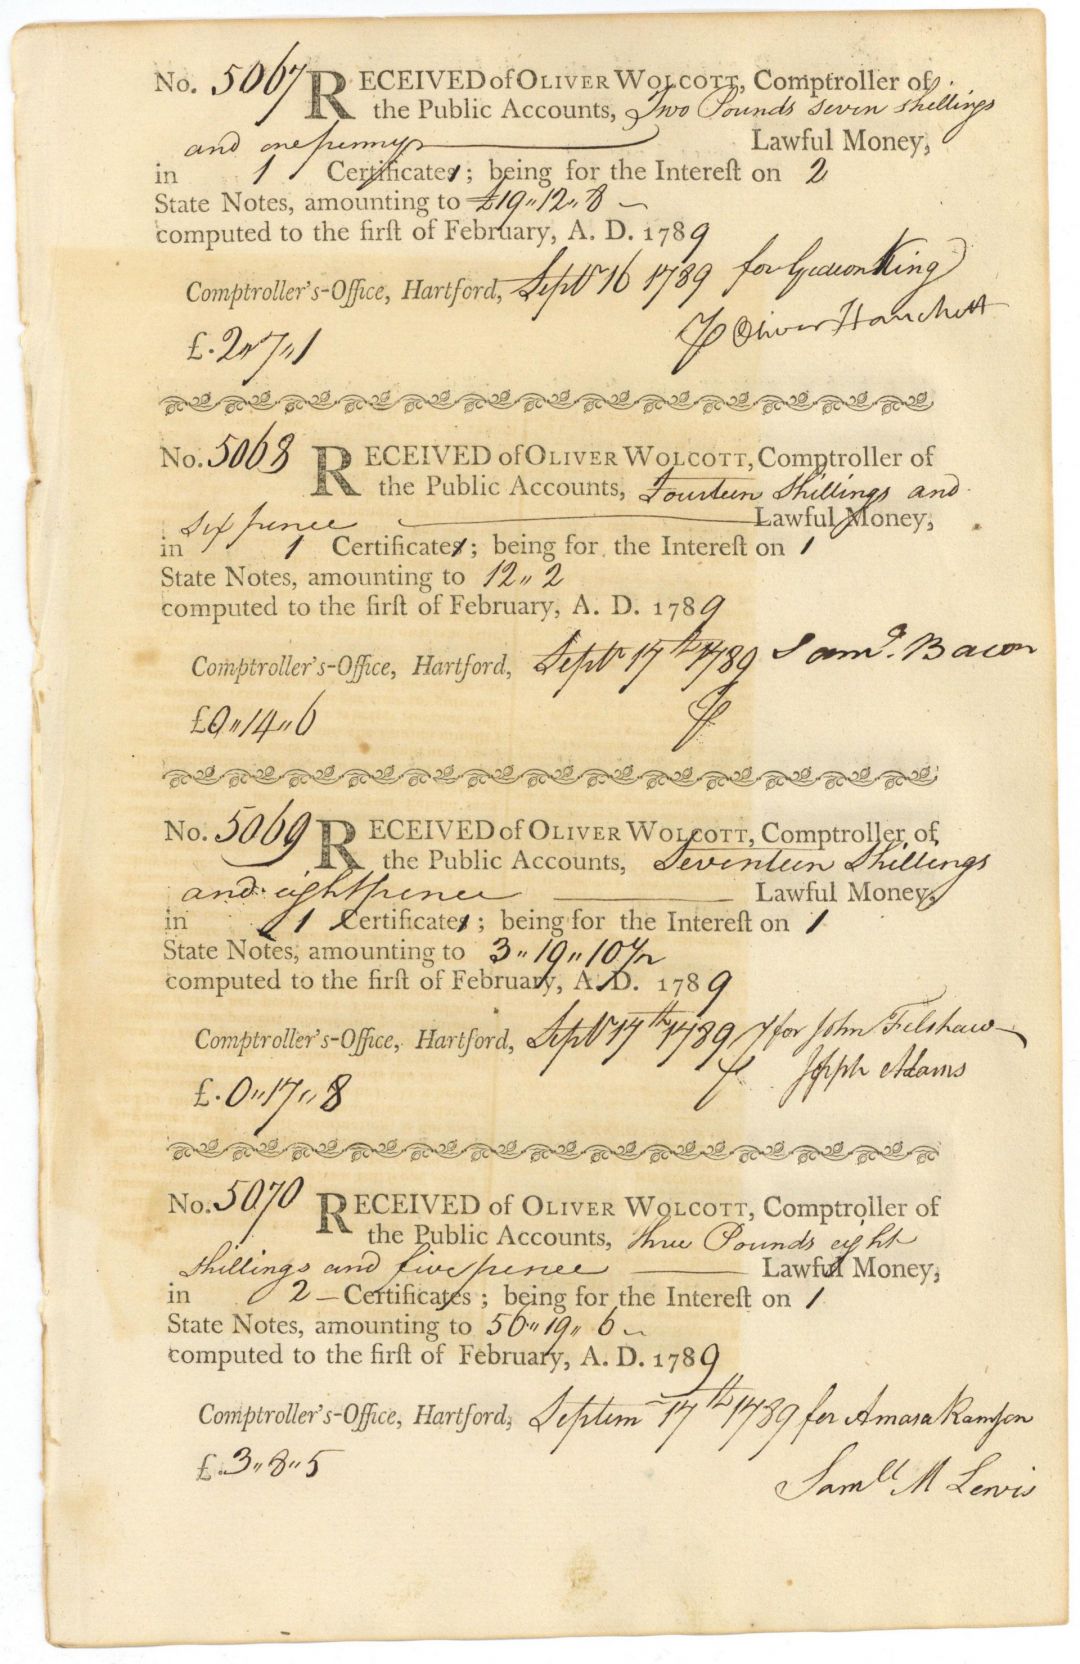 No. 5067 RECEIVED of OLIVER WOLCOTT, Comptroller of
the Public Accounts, Two Pounds seven shillings
and one penny Lawful Money,
in 1 Certificates; being for the Intereſt on 2
State Notes, amounting to £19〃12〃8
computed to the firſt of February, A. D. 1789
Comptroller's-Office, Hartford, Septr 16 1789 for Gedeon King
Oliver Hanchett
£. 2〃7〃1
No. 5068 RECEIVED of OLIVER WOLCOTT, Comptroller of
the Public Accounts, Fourteen Shillings and
six pence Lawful Money,
in 1 Certificates; being for the Intereſt on 1
State Notes, amounting to 12〃2
computed to the firſt of February, A. D. 1789
Comptroller's-Office, Hartford, Septr 17th 1789 Saml. Bacon
£0〃14〃6
No. 5069 RECEIVED of OLIVER WOLCOTT, Comptroller of
the Public Accounts, Seventeen Shillings
and eight pence Lawful Money,
in 1 Certificates; being for the Intereſt on 1
State Notes, amounting to 3〃19〃10
computed to the firſt of February, A. D. 1789
Comptroller's-Office, Hartford, Septr 17th 1789 for John Filshaw
Joseph Adams
£. 0〃17〃8
No. 5070 RECEIVED of OLIVER WOLCOTT, Comptroller of
the Public Accounts, three Pounds eight
shillings and five pence Lawful Money,
in 2 Certificates; being for the Intereſt on 1
State Notes, amounting to 56〃19〃6
computed to the firſt of February, A. D. 1789
Comptroller's-Office, Hartford, Septem 17th 1789 for Amasa Ramson
Samll M Lewis
£. 3〃8〃5